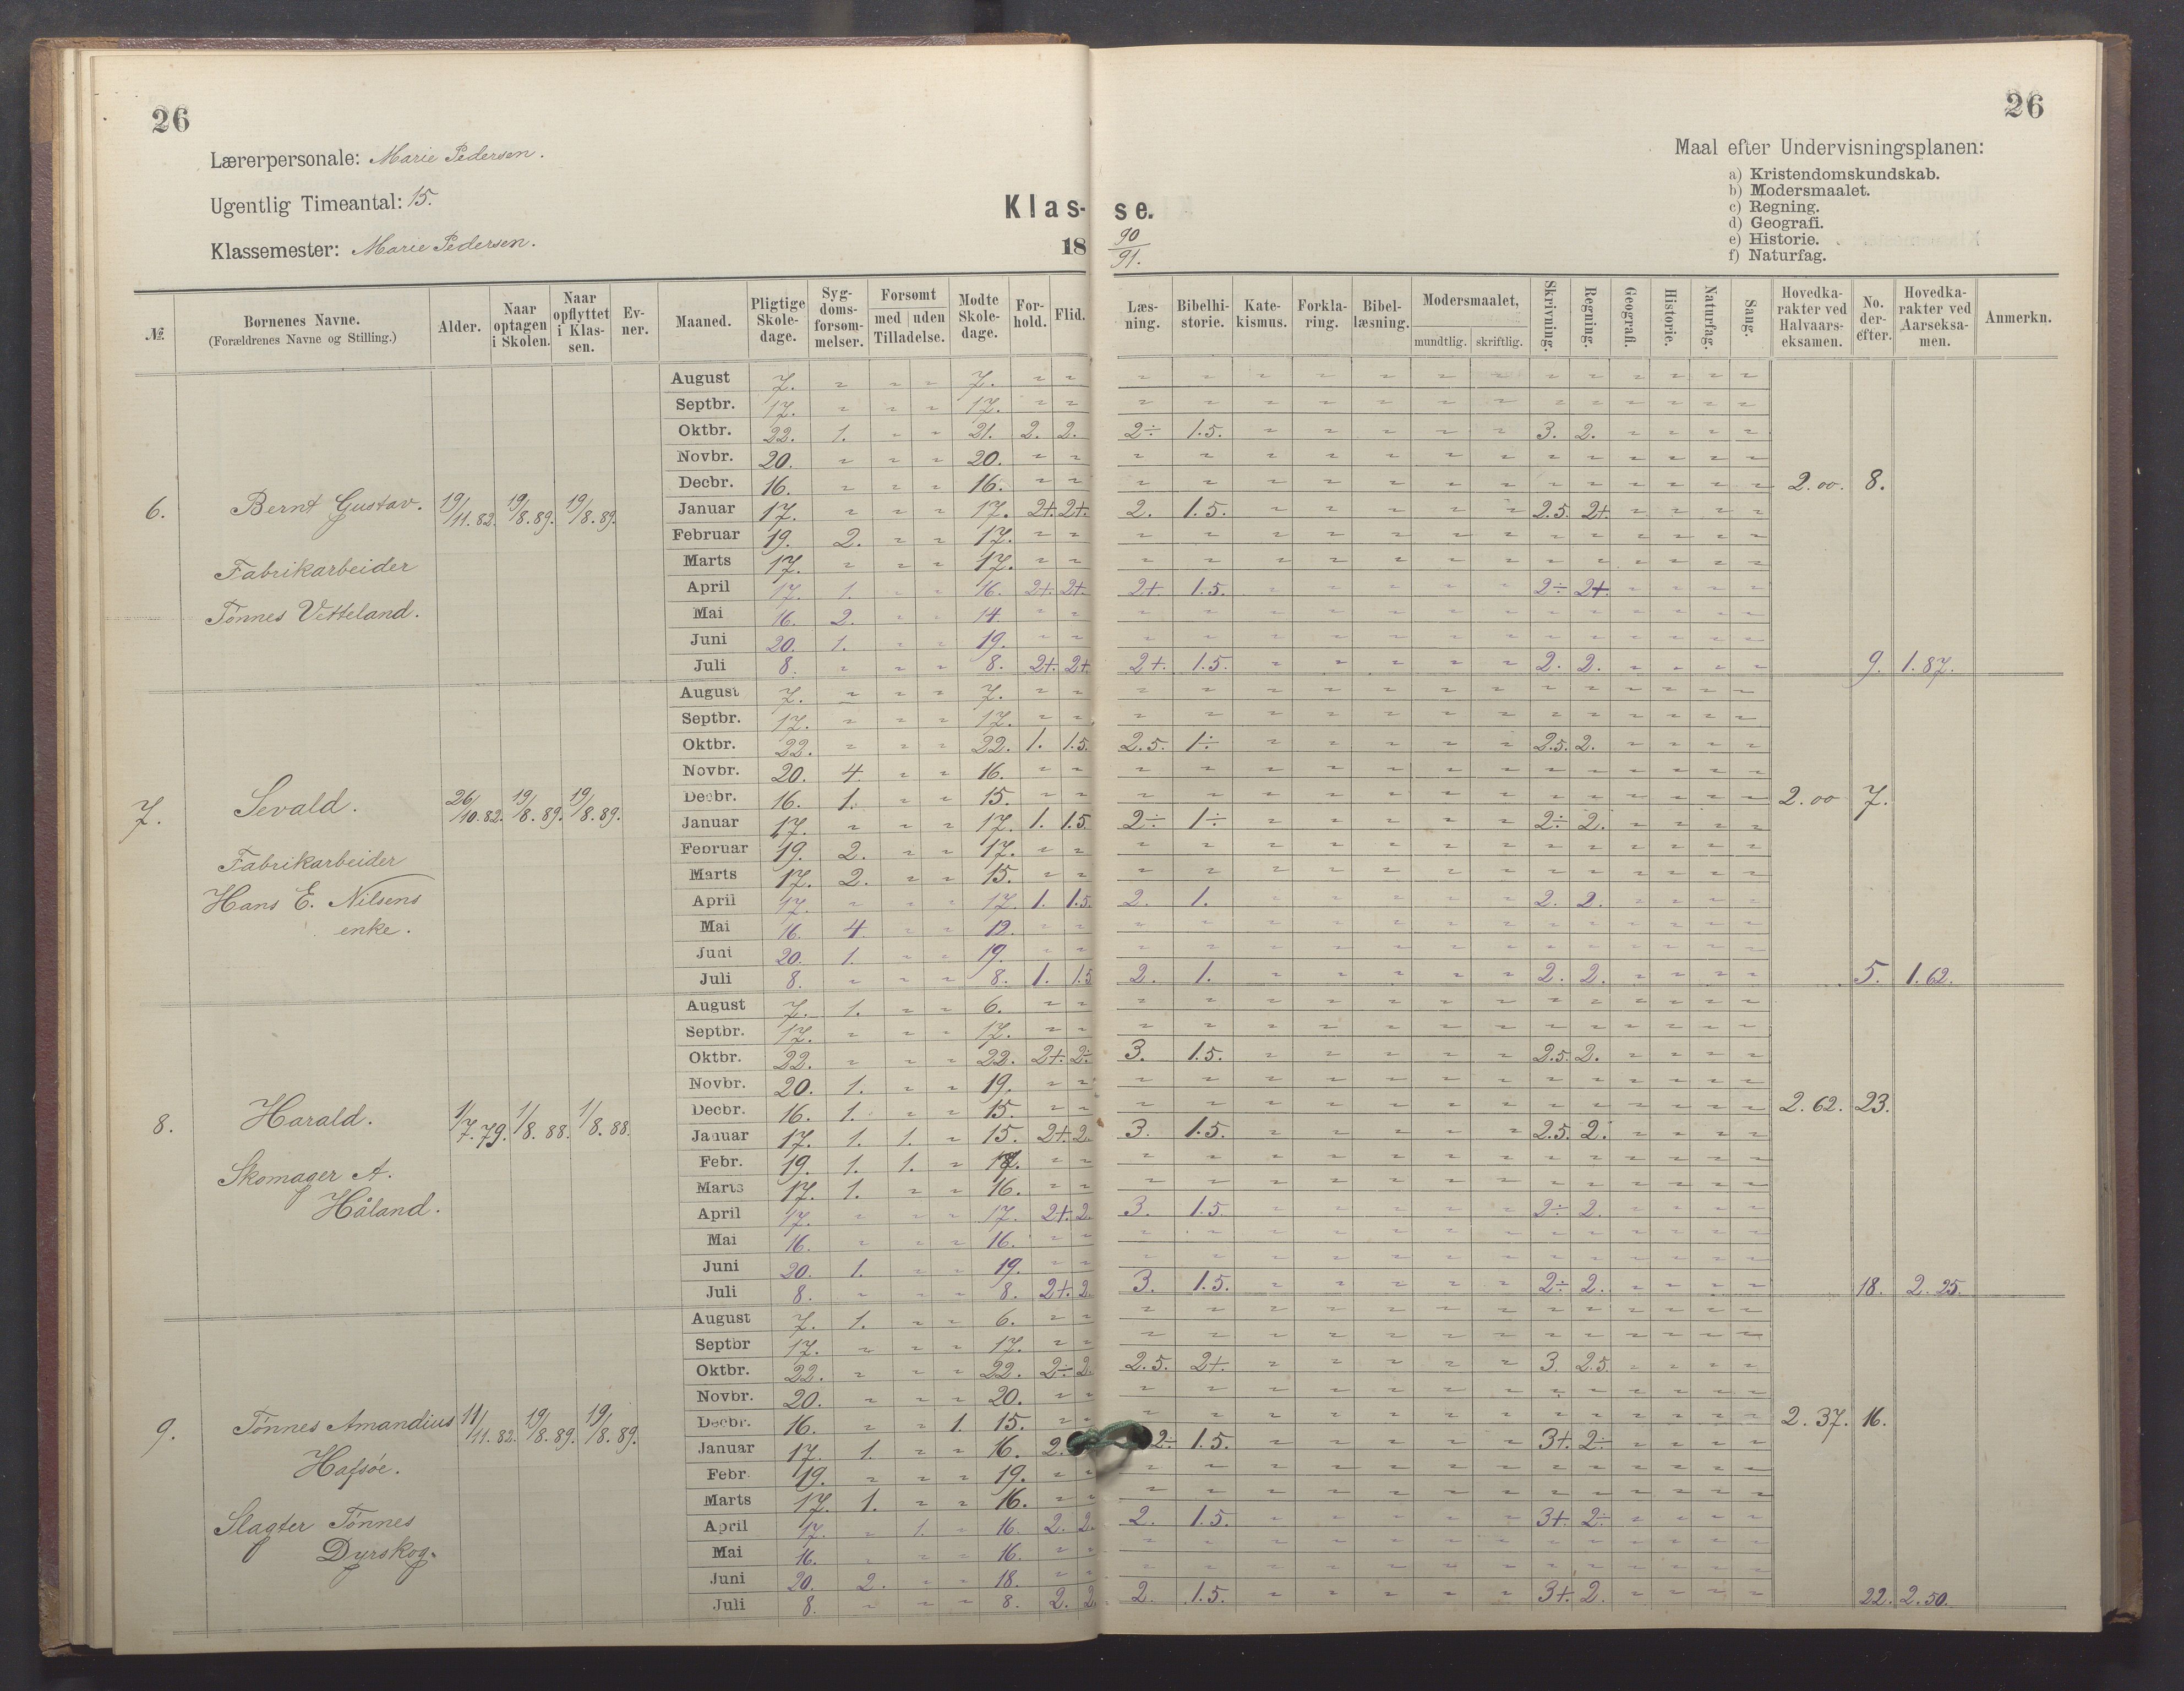 26
26
Lærerpersonale: Marie Pedersen.
Ugentlig Timeantal: 15.
Klassemester: Marie Pedersen.
Klas- se.
18 90/91.
Maal efter Undervisningsplanen:
a) Kristendomskundskab.
b) Modersmaalet.
c) Regning.
d) Geografi.
e) Historie.
f) Naturfag.
№ Børnenes Navne. (Forældrenes Navne og Stilling.) Alder. Naar optagen i Skolen. Naar opflyttet i Klassen. Evner. Maaned. Pligtige Skoledage. Sygdomsforsømmelser. Forsømt med uden Tilladelse. Mødte Skoledage. Forhold. Flid. Læsning. Bibelhistorie. Katekismus. Forklaring. Bibellæsning. Modersmaalet, mundtlig. skriftlig. Skrivning. Regning. Geografi. Historie. Naturfag. Sang. Hovedkarakter ved Halvaarseksamen. No. derefter. Hovedkarakter ved Aarseksamen. Anmerkn.
6. Bernt Gustav. 19/11.82. 19/8.89. 19/8.89.
Fabrikarbeider
Tønnes Vetteland.
August 7. " " " 7. " " " " " " " " " " " " " " "
Septbr. 17. " " " 17. " " " " " " " " " " " " " " "
Oktbr. 22. 1. " " 21. 2. 2. 2÷ 1.5. " " " " " 3. 2. " " " "
Novbr. 20. " " " 20. " " " " " " " " " " " " " " "
Decbr. 16. " " " 16. " " " " " " " " " " " " " " " 2.00. 8.
Januar 17. " " " 17. 2+. 2+. 2. 1.5. " " " " " 2.5. 2+. " " " "
Februar 19. 2. " " 17. " " " " " " " " " " " " " " "
Marts 17. " " " 17. " " " " " " " " " " " " " " "
April 17. 1. " " 16. 2+. 2+. 2+ 1.5. " " " " " 2÷ 2+. " " " "
Mai 16. 2. " " 14. " " " " " " " " " " " " " " "
Juni 20. 1. " " 19. " " " " " " " " " " " " " " "
Juli 8. " " " 8. 2+. 2+. 2+. 1.5. " " " " " 2. 2. " " " " 9. 1.87.
7. Sevald. 26/10.82. 19/8.89. 19/8.89.
Fabrikarbeider
Hans E. Nilsens
enke.
August 7. " " " 7. " " " " " " " " " " " " " " "
Septbr. 17. " " " 17. " " " " " " " " " " " " " " "
Oktbr. 22. " " " 22. 1. 1.5. 2.5. 1÷ " " " " " 2.5. 2. " " " "
Novbr. 20. 4. " " 16. " " " " " " " " " " " " " " "
Decbr. 16. 1. " " 15. " " " " " " " " " " " " " " " 2.00 7.
Januar 17. " " " 17. 1. 1.5. 2÷ 1÷ " " " " " 2÷ 2. " " " "
Februar 19. 2. " " 17. " " " " " " " " " " " " " " "
Marts 17. 2. " " 15. " " " " " " " " " " " " " " "
April 17. " " " 17. 1. 1.5. 2. 1. " " " " " 2. 2. " " " "
Mai 16. 4. " " 12. " " " " " " " " " " " " " " "
Juni 20. 1. " " 19. " " " " " " " " " " " " " " "
Juli 8. " " " 8. 1. 1.5 2. 1. " " " " " 2. 2. " " " " 5. 1.62.
8. Harald. 1/7.79. 1/8.88. 1/8.88.
Skomager A.
Håland.
August 7. 1. " " 6. " " " " " " " " " " " " " " "
Septbr. 17. " " " 17. " " " " " " " " " " " " " " "
Oktbr. 22. " " " 22. 2+. 2÷ 3. 1.5. " " " " " 2.5. 2. " " " "
Novbr. 20. 1. " " 19. " " " " " " " " " " " " " " "
Decbr. 16. 1. " " 15. " " " " " " " " " " " " " " " 2.62. 23.
Januar 17. 1. 1. " 15. 2+. 2. 3. 1.5. " " " " " 2.5. 2. " " " "
Febr. 19. 1. 1. " 17. " " " " " " " " " " " " " " "
Marts 17. 1. " " 16. " " " " " " " " " " " " " " "
April 17. " " " 17. 2+. 2. 3. 1.5. " " " " " 2÷ 2. " " " "
Mai 16. " " " 16. " " " " " " " " " " " " " " "
Juni 20. 1. " " 19. " " " " " " " " " " " " " " "
Juli 8. " " " 8. 2+. 2. 3. 1.5. " " " " " 2÷ 2. " " " " 18. 2.25.
9. Tønnes Amandius 11/11.82. 19/8.89. 19/8.89.
Hafsøe.
Slagter Tønnes
Dyrskog.
August 7. 1. " " 6. " " " " " " " " " " " " " " "
Septbr 17. " " " 17. " " " " " " " " " " " " " " "
Oktbr. 22. " " " 22. 2÷ 2. 2.5. 2+. " " " " " 3. 2.5. " " " "
Novbr. 20. " " " 20. " " " " " " " " " " " " " " "
Decbr. 16. " " 1. 15. " " " " " " " " " " " " " " " 2.37. 16.
Januar 17. 1. " " 16. 2. 2÷ 1.5. " " " " " 3+. 2÷ " " " "
Febr. 19. " " " 19. " " " " " " " " " " " " " " "
Marts 17. 1. " " 16. " " " " " " " " " " " " " " "
April 17. " 1. " 16. 2. 2. 2. 1.5. " " " " " 3+. 2÷ " " " "
Mai 16. " " " 16. " " " " " " " " " " " " " " "
Juni 20. 2. " " 18. " " " " " " " " " " " " " " "
Juli 8. " " " 8. 2. 2. 2. 1.5. " " " " " 3+. 2. " " " " 22. 2.50.